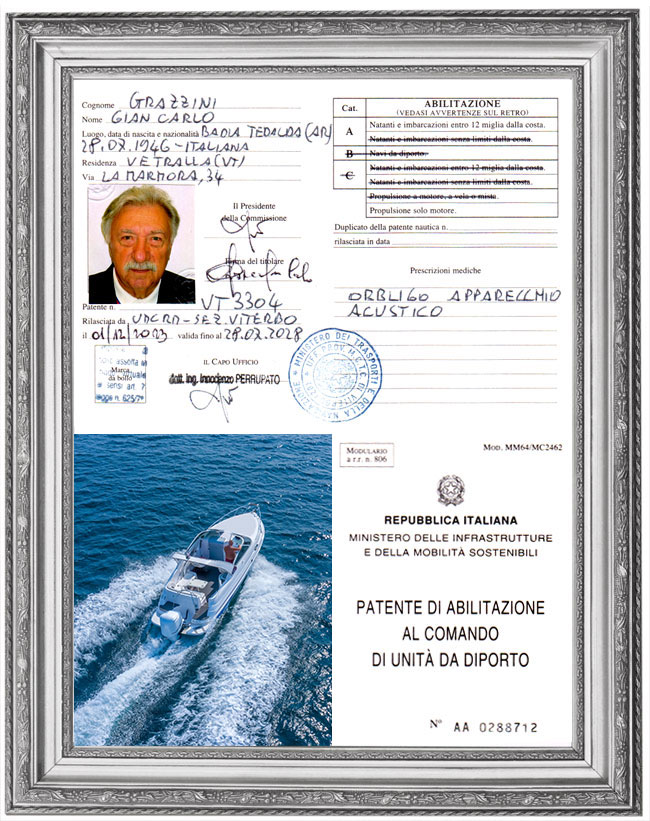 Cognome GRAZZINI
Nome GIAN CARLO
Luogo, data di nascita e nazionalità BADIA TEDALDA (AR)
28.07.1946-ITALIANA
Residenza VETRALLA (VT)
Via LA MARMORA, 34
Il Presidente
della Commissione
Firma del titolare
Patente n. VT 3304
Rilasciata da UMCRM-SEZ. VITERBO
il 01/12/2023 valida fino al 28.07.2028
Marca
da bollo
assolta
sensi art. 7
n. 625/7
IL CAPO UFFICIO
dott. Ing. Innocenzo PERRUPATO
MINISTERO DEI TRASPORTI E DELLA NAVIGAZIONE
Cat.
ABILITAZIONE
(VEDASI AVVERTENZE SUL RETRO)
A
Natanti e imbarcazioni entro 12 miglia dalla costa.
Natanti e imbarcazioni senza limiti dalla costa.
B
Navi da diporto.
C
Natanti e imbarcazioni entro 12 miglia dalla costa.
Natanti e imbarcazioni senza limiti dalla costa.
Propulsione a motore, a vela o mista.
Propulsione solo motore.
Duplicato della patente nautica n.
rilasciata in data
Prescrizioni mediche
OBBLIGO APPARECCHIO
ACUSTICO
MODULARIO
a r.z. n. 806
MOD. MM64/MC2462
REPUBBLICA ITALIANA
MINISTERO DELLE INFRASTRUTTURE
E DELLA MOBILITÀ SOSTENIBILI
PATENTE DI ABILITAZIONE
AL COMANDO
DI UNITÀ DA DIPORTO
N° AA 0288712